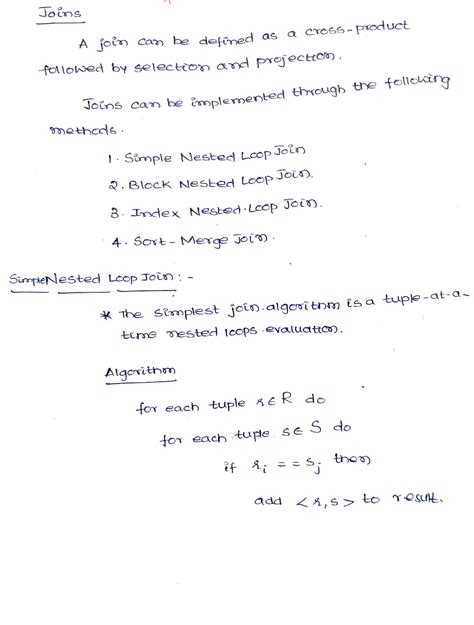 Joins
A join can be defined as a cross-product
followed by selection and projection.
Joins can be implemented through the following
methods.
1. Simple Nested Loop Join
2. Block Nested Loop Join.
3. Index Nested Loop Join.
4. Sort-Merge Join.
Simple Nested Loop Join :-
* The simplest join algorithm is a tuple-at-a-
time nested loops evaluation.
Algorithm
for each tuple r∈R do
for each tuple s∈S do
if ri == sj then
add <r,s> to result.